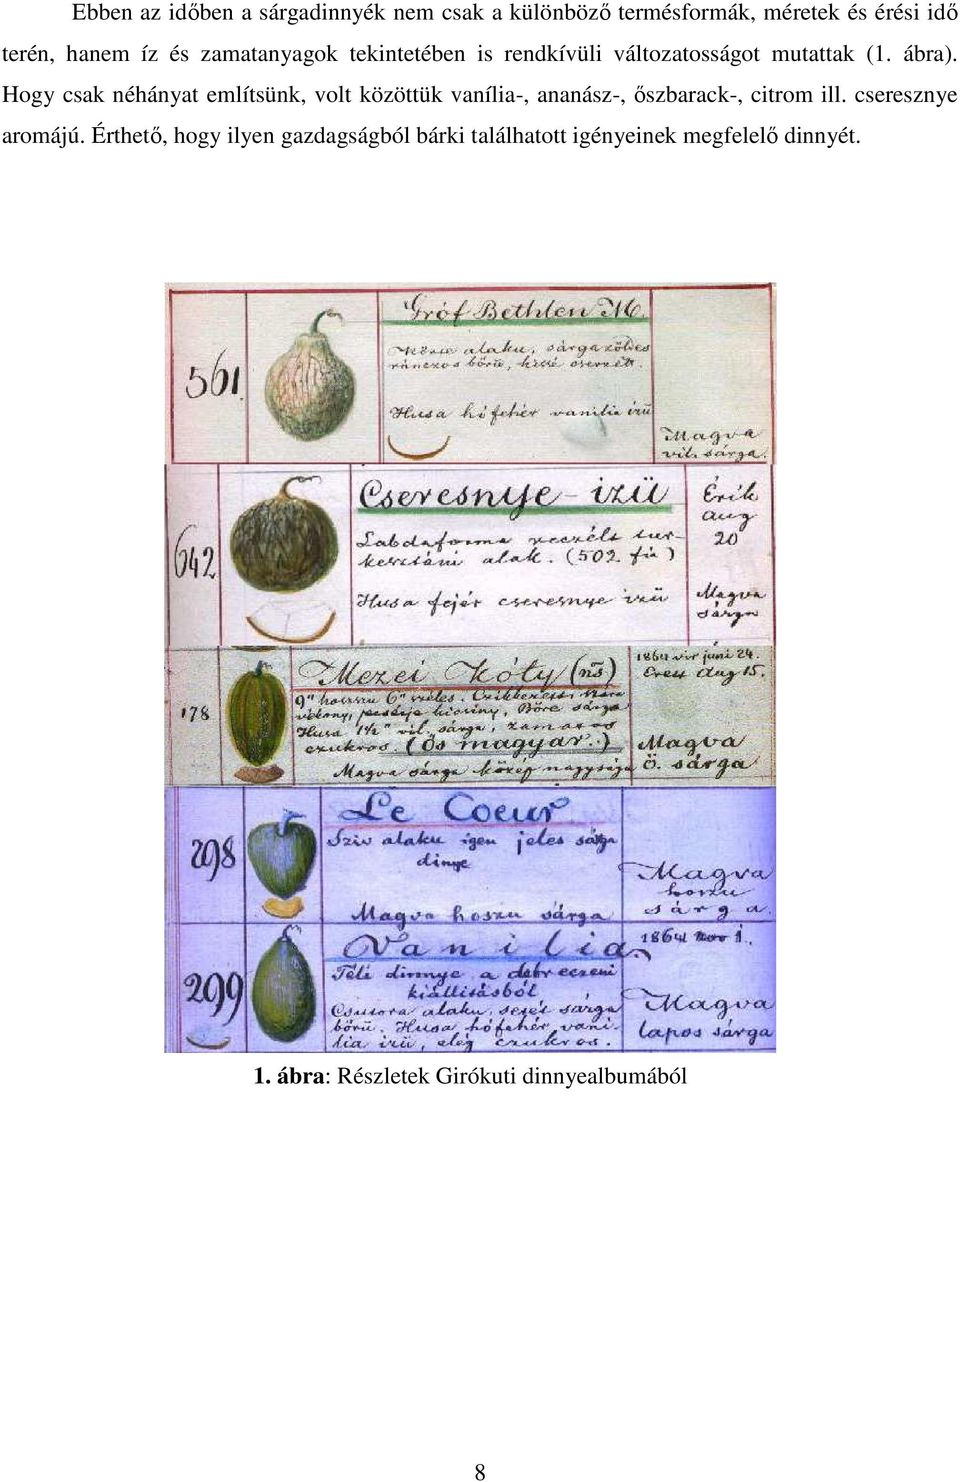 Ebben az időben a sárgadinnyék nem csak a különböző termésformák, méretek és érési idő
terén, hanem íz és zamatanyagok tekintetében is rendkívüli változatosságot mutattak (1. ábra).
Hogy csak néhányat említsünk, volt közöttük vanília-, ananász-, őszbarack-, citrom ill. cseresznye
aromájú. Érthető, hogy ilyen gazdagságból bárki találhatott igényeinek megfelelő dinnyét.
561.
Gróf Bethlen M.
alaku, sárga zöldes
ránczos börü, kissé cserzett.
Husa hófehér vanilia izü
Magva
vil. sárga.
642
Cseresnye-izü
Labdaforma reczéls tur-
kesztáni alak. (502. fia)
Husa fejér cseresnye izü
Érik
aug
20
Magva
sárga
178
Mezei Kóty (ns)
9" hosszu 6" széles.
vékony, Böre sárga
Husa 1½" vil. sárga, zamatos
czukros. (Ős magyar.)
Magva sárga közép nagysága
1864 vir juni 24.
Erett Aug 15.
Magva
ö. sárga
298
Le Coeur
Sziv alaku igen jeles sárga
dinye
Magva hoszu sárga
Magva
hoszu
sárga.
299
Vanilia.
Téli dinnye a debreczeni
kiállitásból
Csutora alaku, setét sárga
börü. Husa hófehér, vani-
lia izü, elég czukros.
1864 Nov 1.
Magva
lapos sárga
1. ábra: Részletek Girókuti dinnyealbumából
8